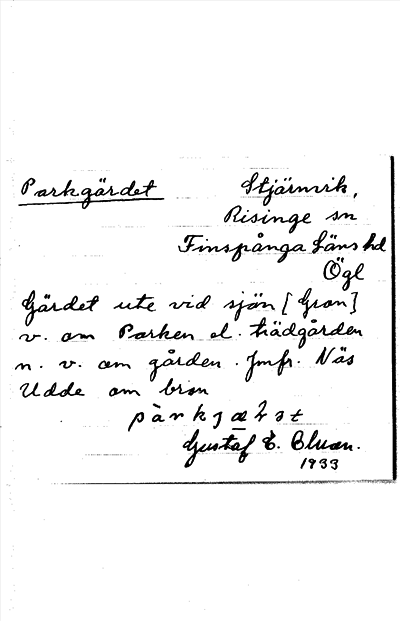 Parkgärdet Stjärnvik,
Risinge sn
Finspånga läns hd
Ögl
Gärdet ute vid sjön [Gron]
v. om Parken el. trädgården
n. v. om gården. Jmfr. Näs
Udde om bron
Gustaf E. Bluan.
1933